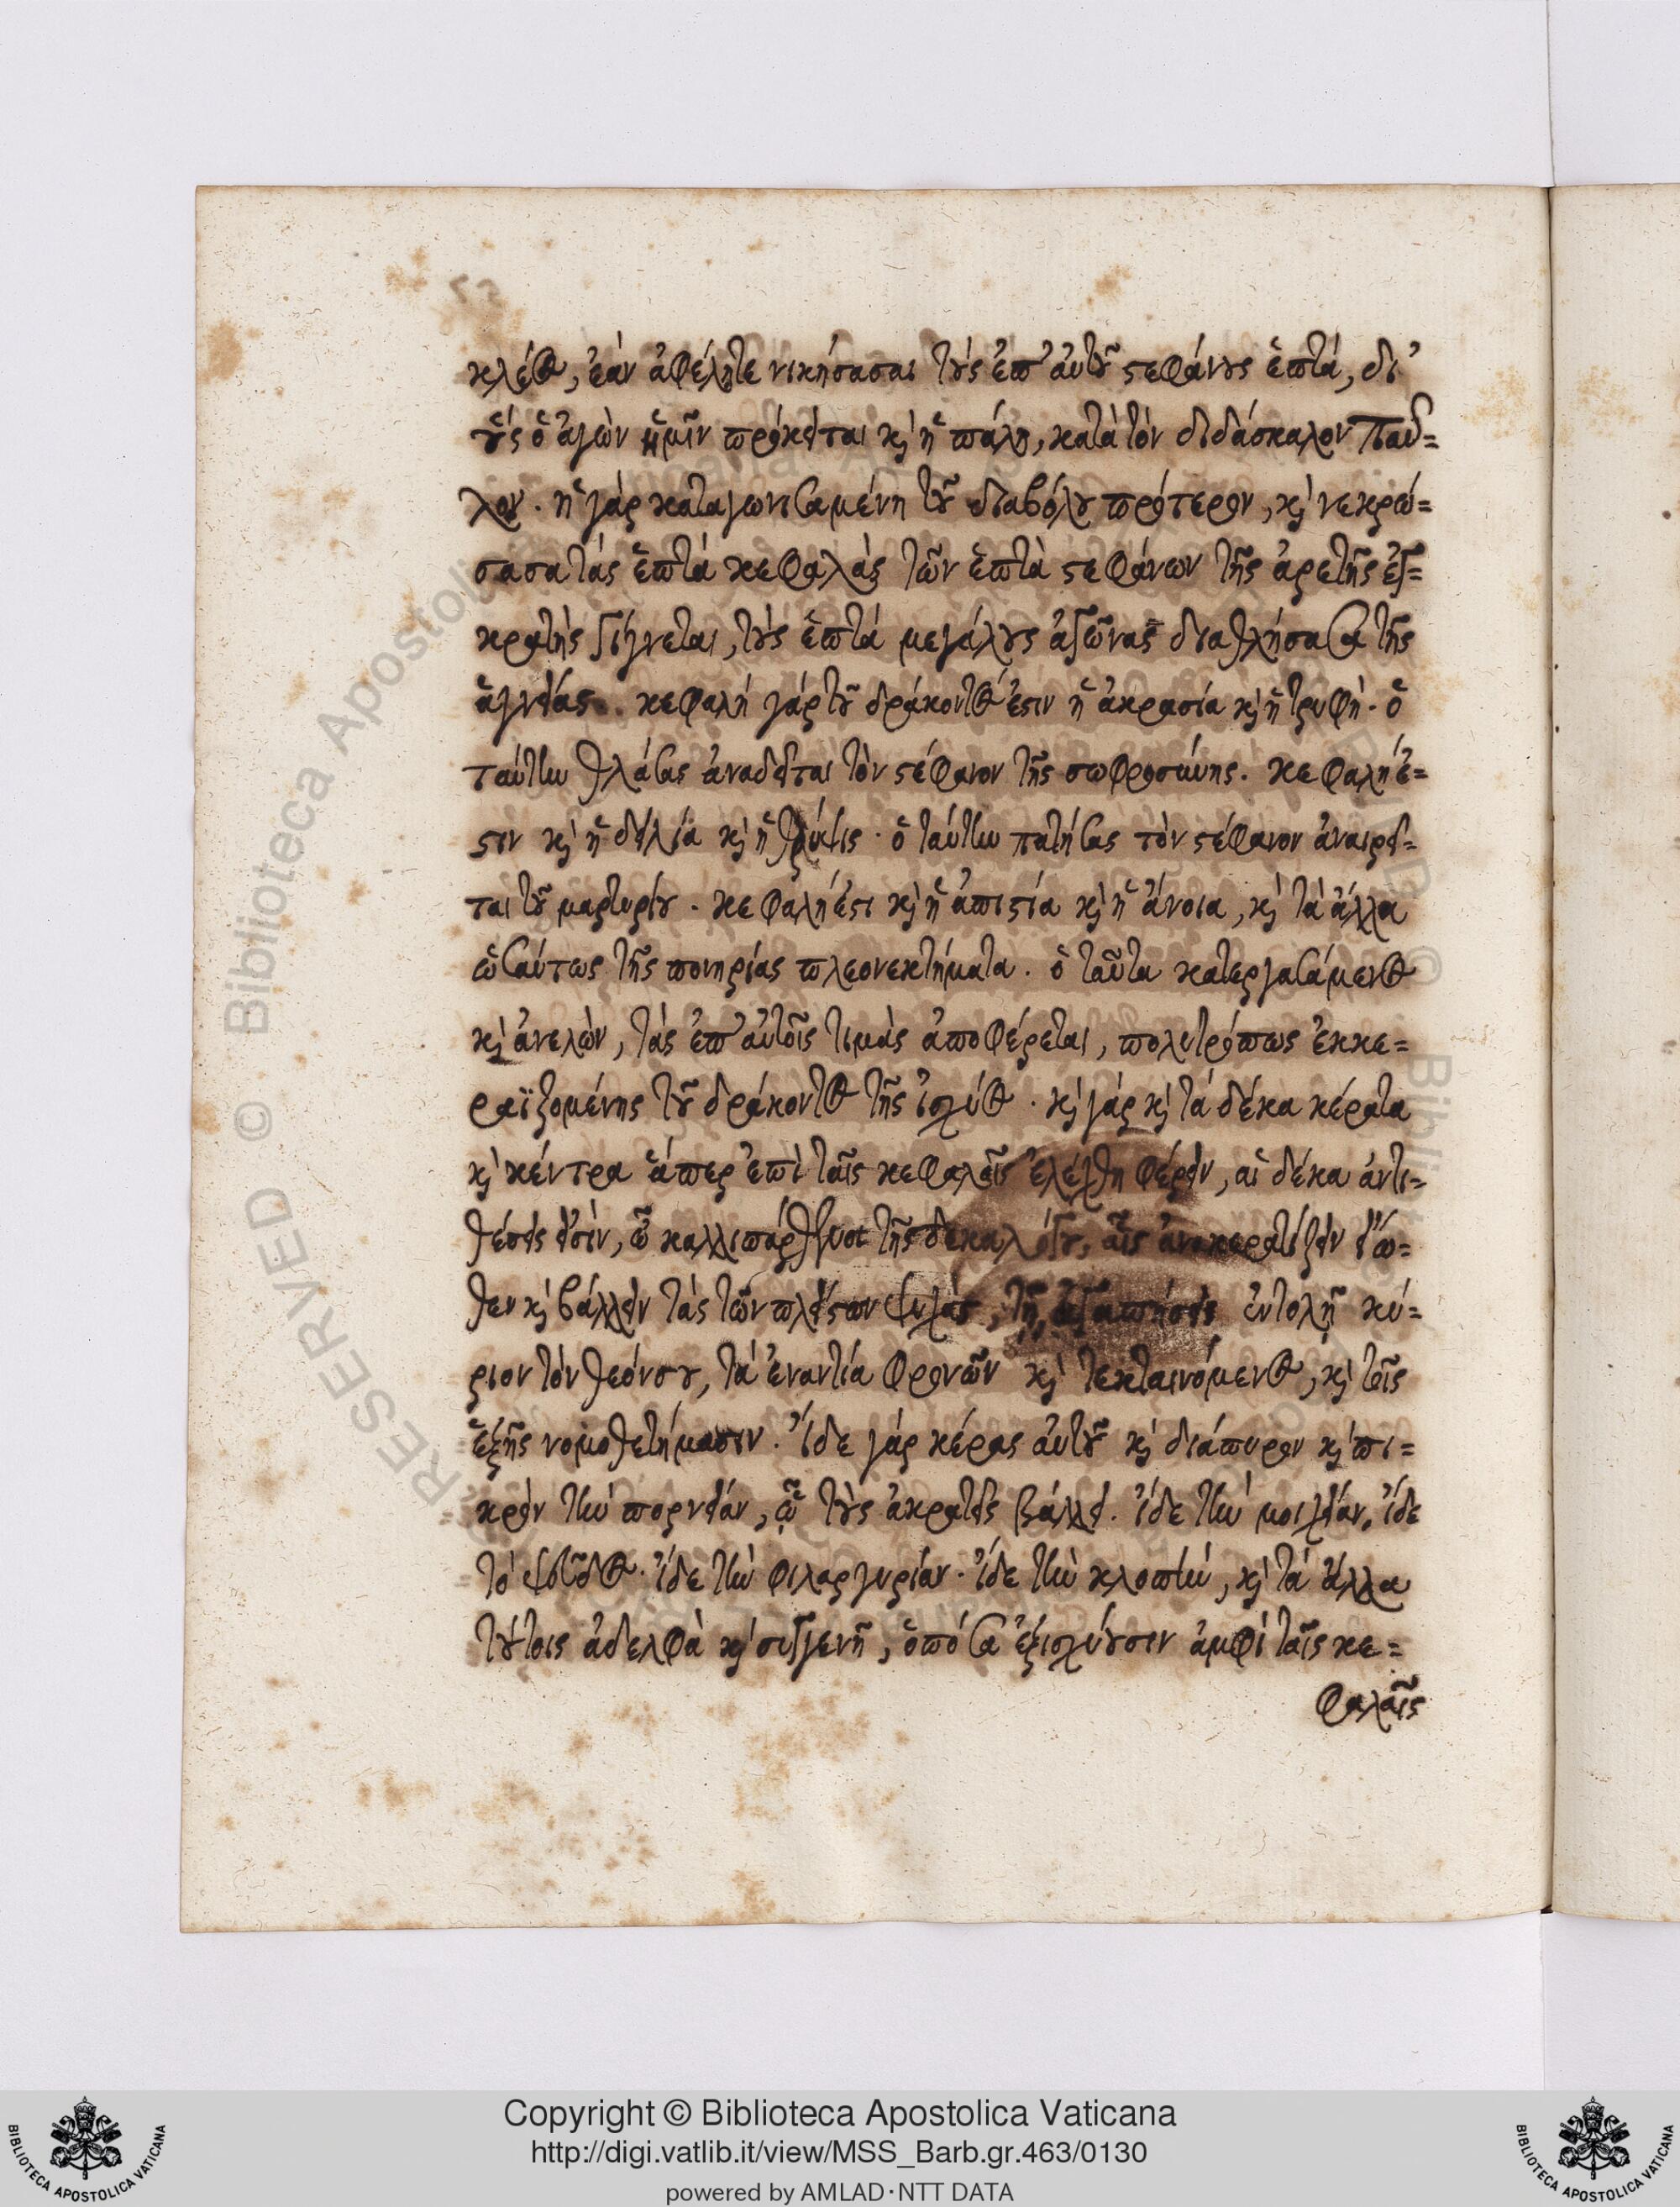 κλέος, ἐὰν ἀφέλητε νικήσασαι τοὺς ἐπ' αὐτοῦ στεφάνους ἑπτά, δι'
οὓς ὁ ἀγὼν ἡμῖν πρόκειται κὶ ἡ πάλη, κατὰ τὸν διδάσκαλον Παῦ=
λον. ἡ γάρ καταγωνισαμένη τοῦ διαβόλου πρότερον, κὶ νεκρώ=
σασα τάς ἑπτά κεφαλὰς τῶν ἑπτὰ στεφάνων τῆς ἀρετῆς ἐγ=
κρατής γίγνεται, τοὺς ἑπτά μεγάλους ἀγῶνας διαθλήσασα τῆς
ἁγνείας. κεφαλή γάρ τοῦ δράκοντος ἐστιν ἡ ἀκρασία κὶ ἡ τρυφή. ὁ
ταύτην θλάσας ἀναδεῖται τὸν στέφανον τῆς σωφροσύνης. κεφαλή ἐ=
στιν κὶ ἡ δειλία κὶ ἡ θρύψις. ὁ ταύτην πατήσας τὸν στέφανον ἀναιρεῖ=
ται τοῦ μαρτυρίου. κεφαλή ἐστι κὶ ἡ ἀπιστία κὶ ἡ ἄνοια, κὶ τὰ ἄλλα
ὡσαύτως τῆς πονηρίας πλεονεκτήματα. ὁ ταῦτα κατεργασάμενος
κὶ ἀνελών, τάς ἐπ' αὐτοῖς τιμὰς ἀποφέρεται, πολυτρόπως ἐκκε=
ραϊζομένης τοῦ δράκοντος τῆς ἰσχύος. κὶ γάρ κὶ τά δέκα κέρατα
κὶ κέντρα ἅπερ ἐπὶ ταῖς κεφαλαῖς ἐλέχθη φέρειν, αἱ δέκα ἀντι=
θέσεις εἰσίν, ὦ καλλιπάρθενοι τῆς δεκαλόγου, αἷς ἀνακερατίζειν εἴω=
θεν κὶ βάλλειν τάς τῶν πλείστων ψυχάς, τῇ, ἀγαπήσεις ἐντολῇ κύ=
ριον τὸν θεόν σου, τά ἐναντία φρονῶν κὶ τεκταινόμενος, κὶ τοῖς
ἑξῆς νομοθετήμασιν. ἴδε γάρ κέρας αὐτοῦ κὶ διάπυρον κὶ πι=
κρόν τὴν πορνείαν, ᾧ τοὺς ἀκρατεῖς βάλλει. ἴδε τὴν μοιχείαν. ἴδε
τό ψεῦδος. ἴδε τὴν φιλαργυρίαν. ἴδε τὴν κλοπήν, κὶ τά ἄλλα
τούτοις ἀδελφὰ κὶ συγγενῆ, ὁπόσα ἐξισχύουσιν ἀμφί ταῖς κε=
φαλαῖς
Copyright © Biblioteca Apostolica Vaticana
http://digi.vatlib.it/view/MSS_Barb.gr.463/0130
powered by AMLAD·NTT DATA